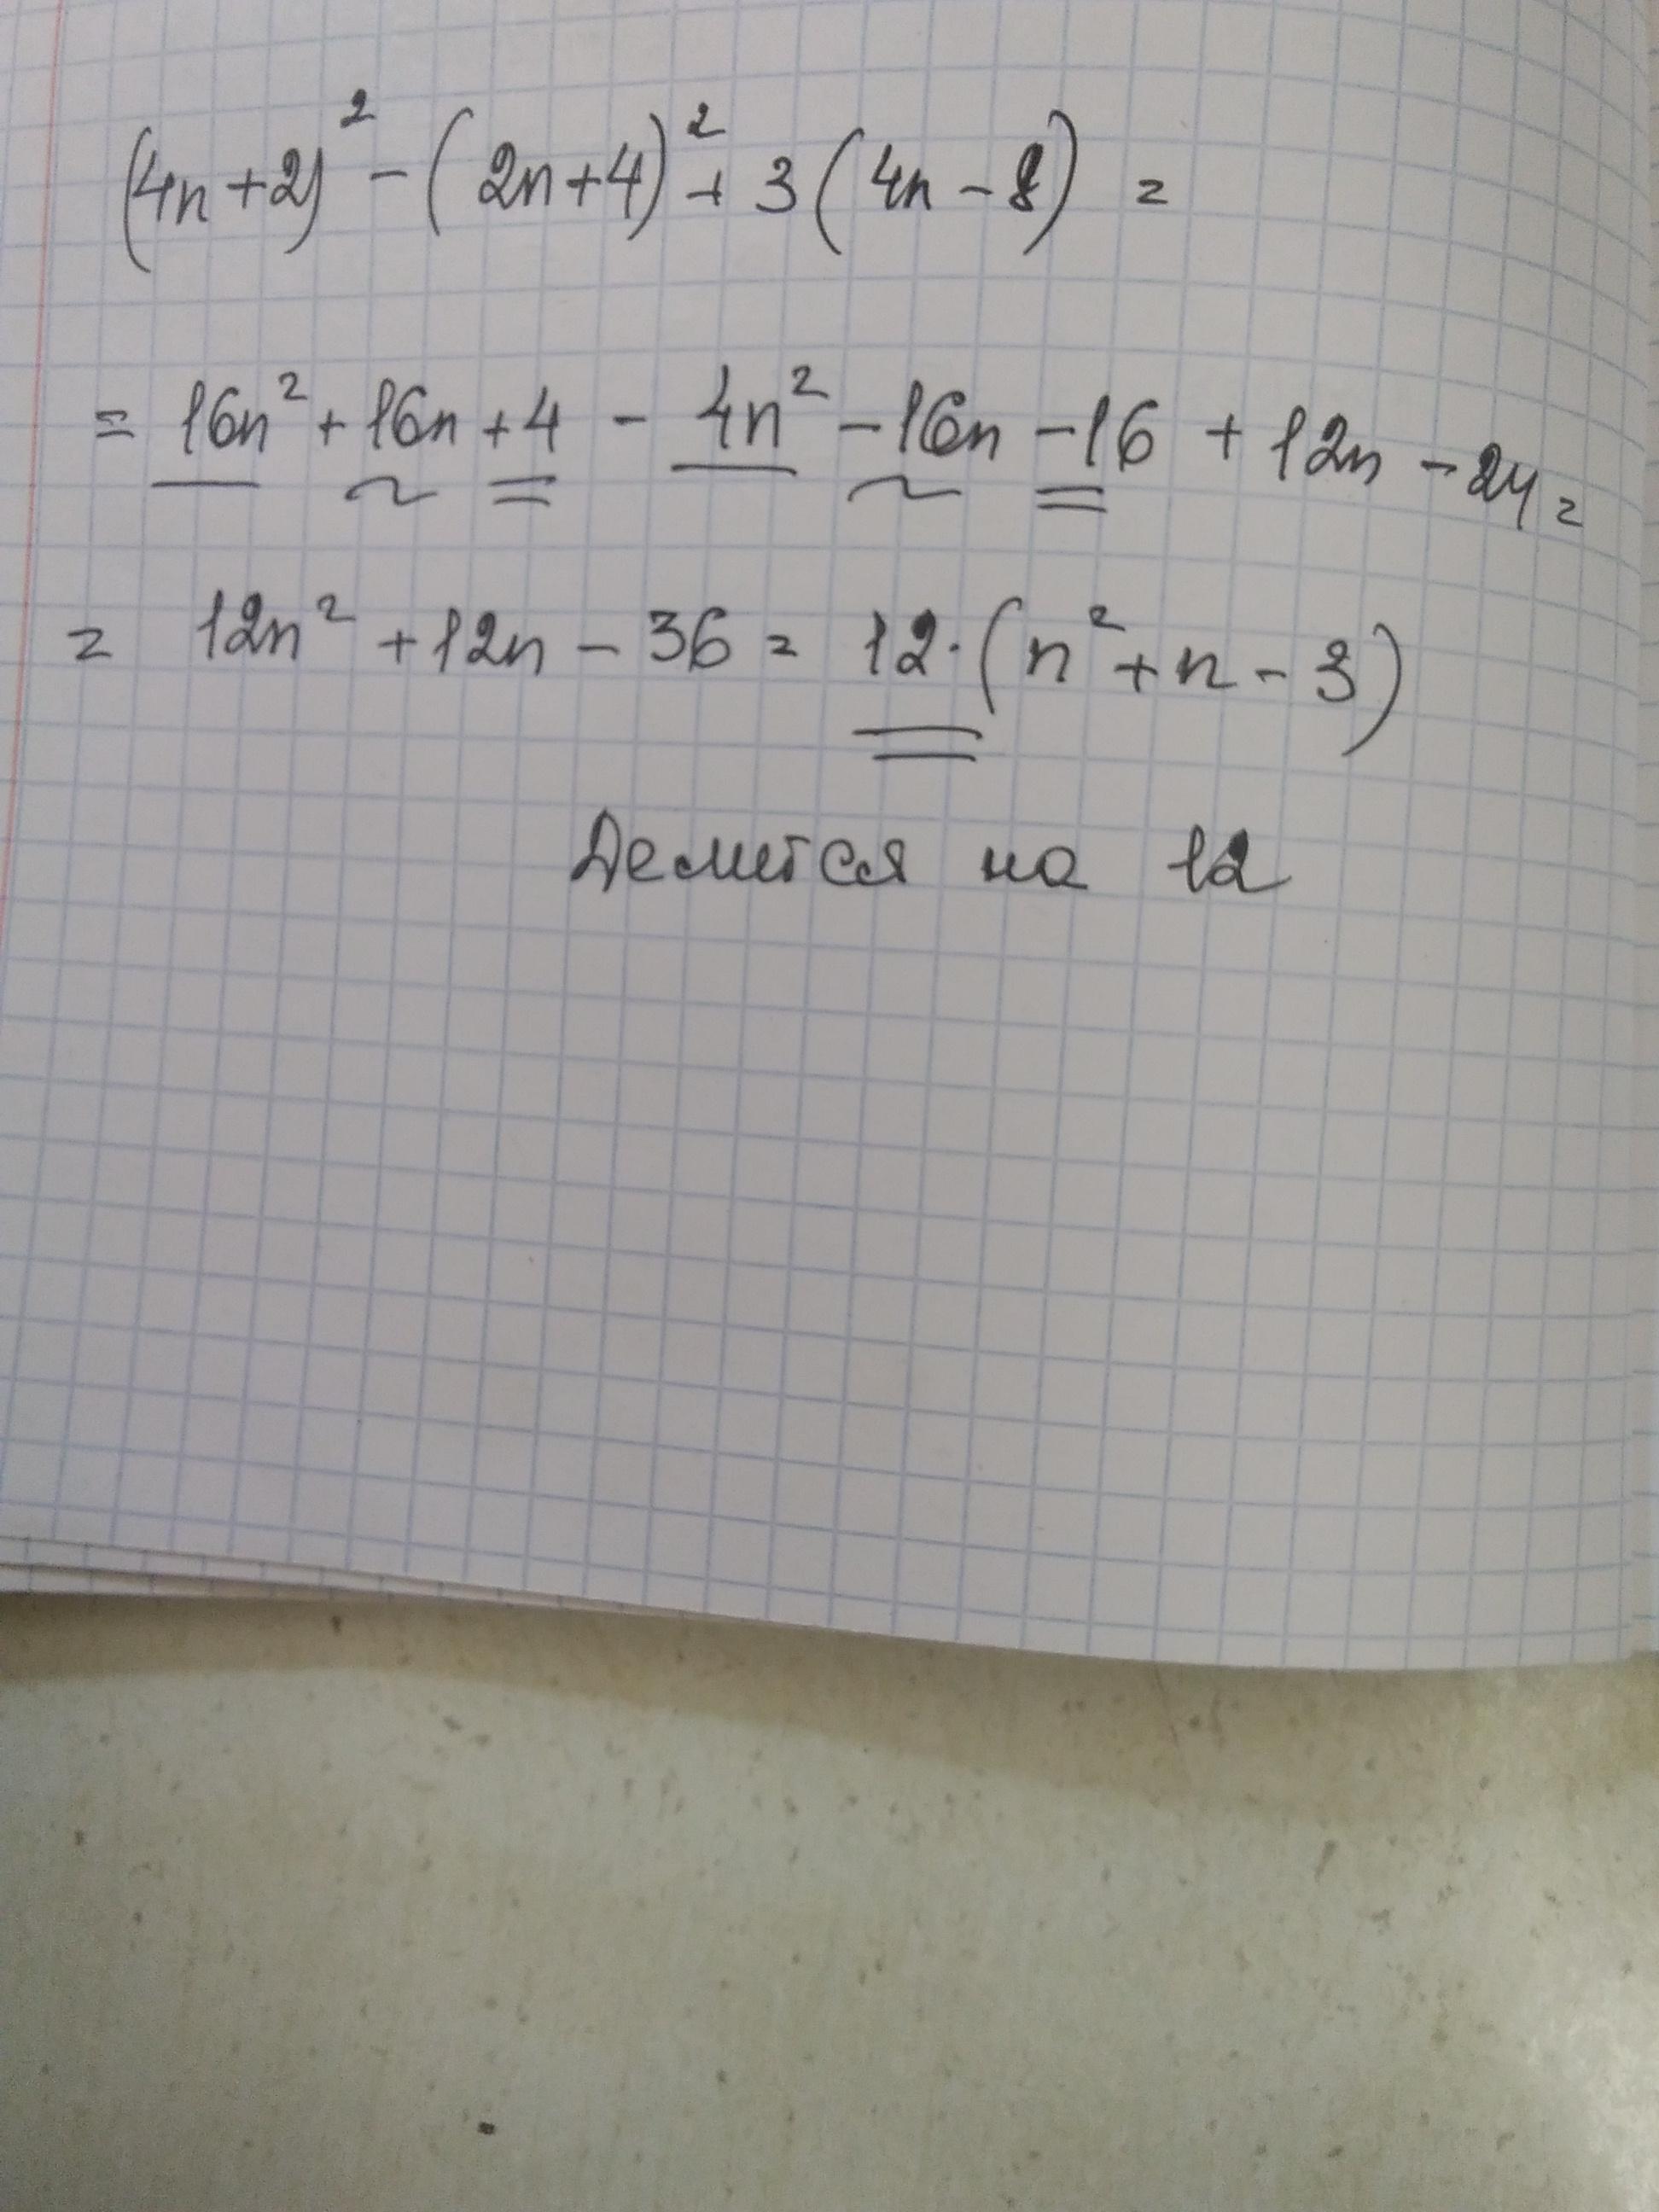 (4n+2)² - (2n+4)² + 3(4n-8) =
= 16n² + 16n + 4 - 4n² - 16n - 16 + 12n - 24 =
= 12n² + 12n - 36 = 12·(n² + n - 3)
Делится на 12